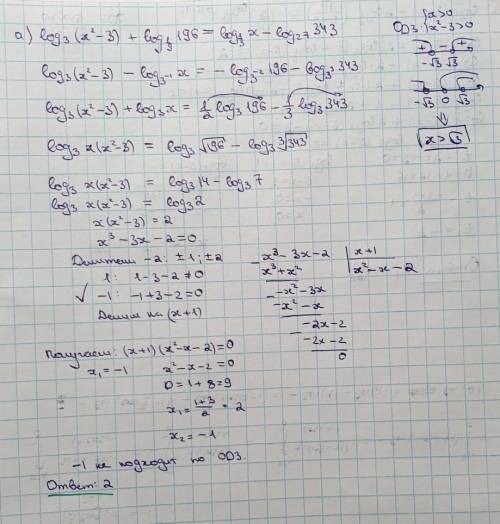 а) log₃(x²-3) + log_{1/9} 196 = log_{1/3} x - log₂₇ 343
ОДЗ: { x>0
x²-3>0
+ - +
-√3 √3
log₃(x²-3) - log_{3⁻¹} x = -log_{3⁻²} 196 - log_{3³} 343
-√3 0 √3
log₃(x²-3) + log₃x = 1/2 log₃ 196 - 1/3 log₃ 343
⇓
x>√3
log₃ x(x²-3) = log₃ √196 - log₃ ∛343
log₃ x(x²-3) = log₃ 14 - log₃ 7
log₃ x(x²-3) = log₃ 2
x(x²-3) = 2
x³ - 3x - 2 = 0
Делители -2: ±1; ±2
1: 1-3-2 ≠ 0
✓ -1: -1+3-2 = 0
Делим на (x+1)
x³ - 3x - 2 | x+1
x³ + x² | x² - x - 2
-x² - 3x
-x² - x
-2x - 2
-2x - 2
0
Получаем: (x+1)(x²-x-2) = 0
x₁ = -1 x²-x-2 = 0
D = 1+8 = 9
x₁ = (1+3)/2 = 2
x₂ = -1
-1 не подходит по ОДЗ.
Ответ: 2